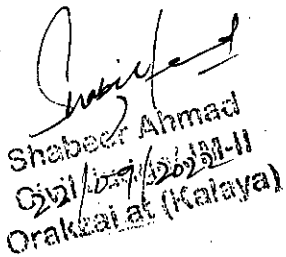 Shabeer Ahmad
Civil JM-II
22/09/2022
Orakzai at (Kalaya)